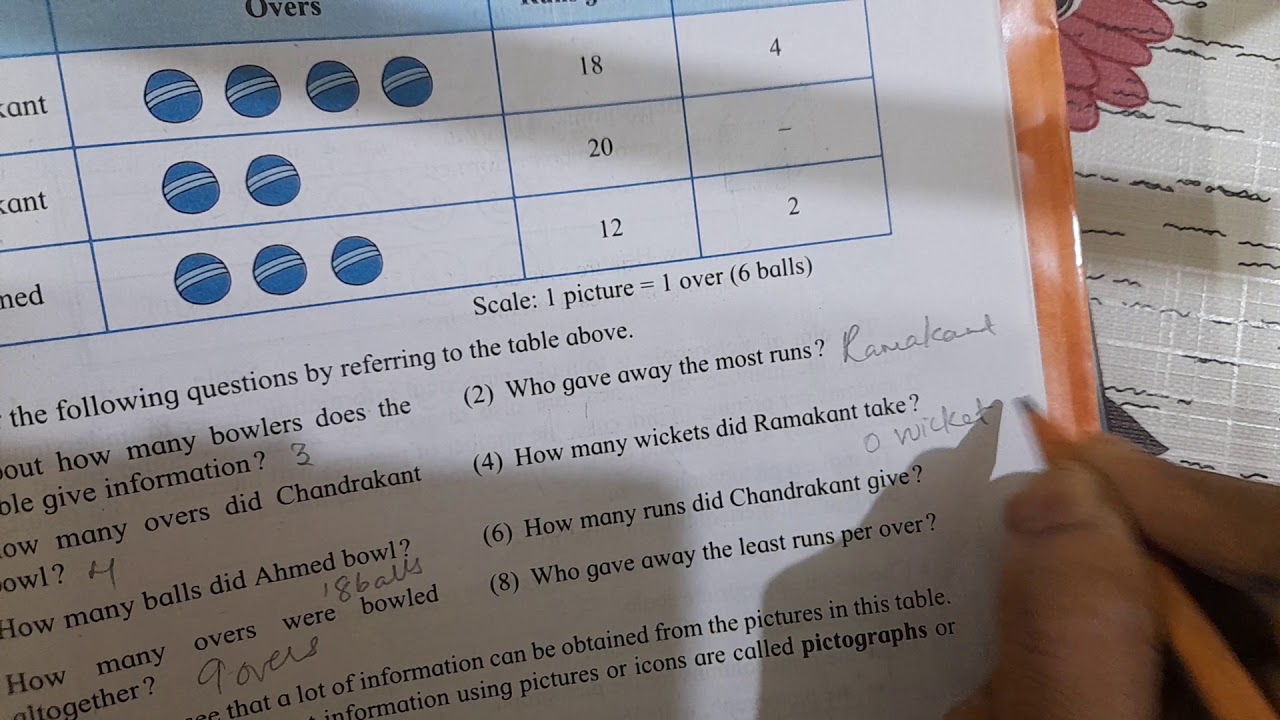 Overs
kant 18 4
kant 20 –
med 12 2
Scale: 1 picture = 1 over (6 balls)
the following questions by referring to the table above.
out how many bowlers does the
ble give information? 3
ow many overs did Chandrakant
owl? 4
How many balls did Ahmed bowl?
18 balls
How many overs were bowled
altogether? 9 overs
(2) Who gave away the most runs? Ramakant
(4) How many wickets did Ramakant take?
0 wicket
(6) How many runs did Chandrakant give?
(8) Who gave away the least runs per over?
ee that a lot of information can be obtained from the pictures in this table.
information using pictures or icons are called pictographs or